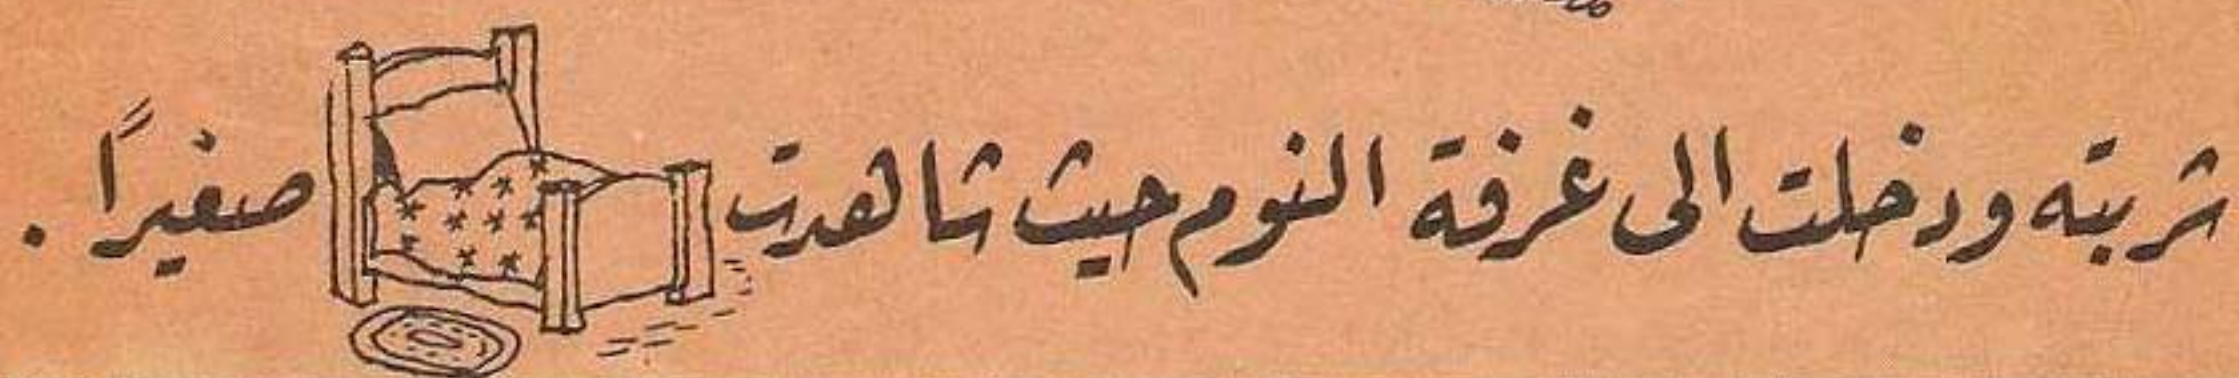 شربته ودخلت الى غرفة النوم حيث شاهدت صغيرًا .